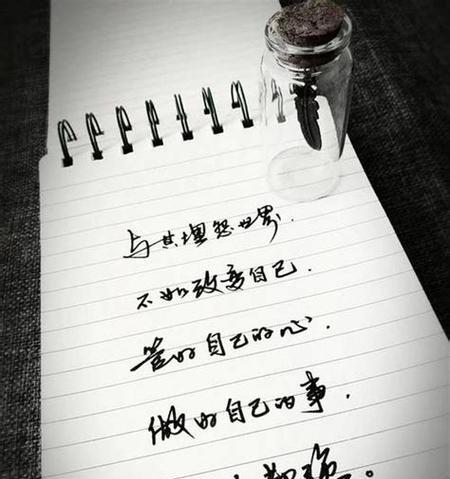 与其埋怨世界.
不如改变自己.
管好自己的心.
做好自己的事.